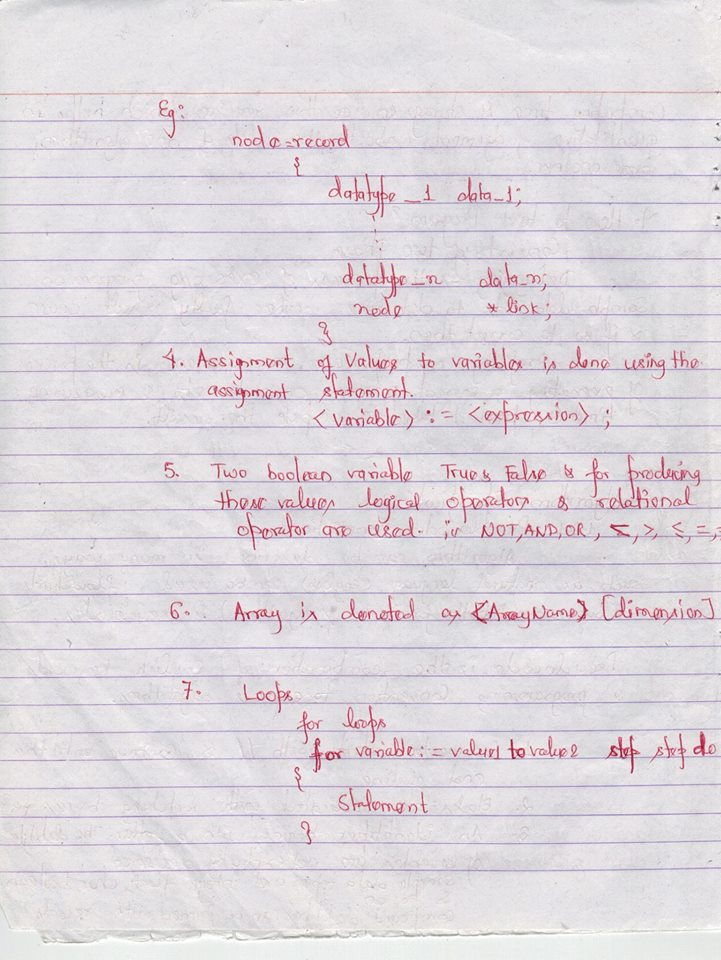 Eg:
node = record
{
datatype_1 data_1;
datatype_n data_n;
node * link;
}
4. Assignment of Values to variables is done using the
assignment statement.
<variable> := <expression> ;
5. Two boolean variable True & False & for producing
these values logical operators & relational
operator are used. ie NOT, AND, OR, <, >, ≤, =,
6. Array is denoted as <ArrayName> [dimension]
7. Loops
for loops
for variable := value1 to value2 step step do
{
Statement
}